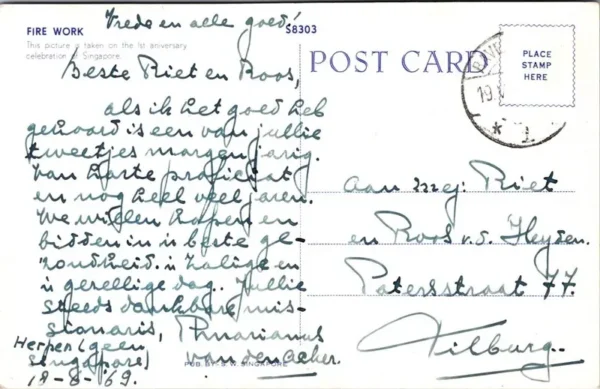 Vrede en alle goed!
FIRE WORK
S8303
This picture is taken on the 1st aniversary
celebration of Singapore.
Beste Riet en Roos,
als ik het goed heb
gehoord is een van jullie
tweetjes morgen jarig.
Van harte proficiat
en nog heel veel jaren.
We willen hopen en
bidden in 'n beste ge-
zondheid 'n zalige en
'n gezellige dag. Jullie
steeds dankbare mis-
sionaris, P. Marianus
van den Acker.
Herpen (geen
Singapore)
18-8-'69.
PUB BY: S.W. SINGAPORE
POST CARD
PLACE
STAMP
HERE
19
* 1
Aan mej: Riet
en Roos v.d. Heyden.
Patersstraat 77.
Tilburg.